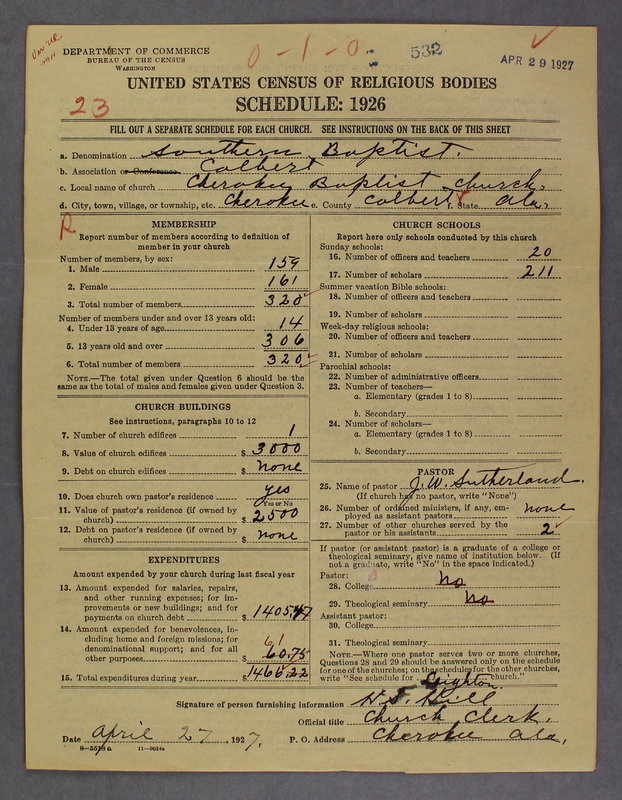 DEPARTMENT OF COMMERCE
BUREAU OF THE CENSUS
WASHINGTON
0-1-0
532
APR 29 1927
UNITED STATES CENSUS OF RELIGIOUS BODIES
23
SCHEDULE: 1926
FILL OUT A SEPARATE SCHEDULE FOR EACH CHURCH. SEE INSTRUCTIONS ON THE BACK OF THIS SHEET
a. Denomination Southern Baptist.
b. Association or Conference Colbert
c. Local name of church Cherokee Baptist Church.
d. City, town, village, or township, etc. Cherokee e. County Colbert f. State Ala.
R
MEMBERSHIP
Report number of members according to definition of
member in your church
Number of members, by sex:
1. Male 159
2. Female 161
3. Total number of members 320
Number of members under and over 13 years old:
4. Under 13 years of age 14
5. 13 years old and over 306
6. Total number of members 320
NOTE.—The total given under Question 6 should be the
same as the total of males and females given under Question 3.
CHURCH BUILDINGS
See instructions, paragraphs 10 to 12
7. Number of church edifices 1
8. Value of church edifices $ 3000
9. Debt on church edifices $ None
10. Does church own pastor's residence yes
Yes or No
11. Value of pastor's residence (if owned by
church) $ 2500
12. Debt on pastor's residence (if owned by
church) $ None
EXPENDITURES
Amount expended by your church during last fiscal year
13. Amount expended for salaries, repairs,
and other running expenses; for im-
provements or new buildings; and for
payments on church debt $ 1405.47
14. Amount expended for benevolences, in-
cluding home and foreign missions; for
denominational support; and for all
other purposes $ 60.75
61
15. Total expenditures during year $ 1466.22
CHURCH SCHOOLS
Report here only schools conducted by this church
Sunday schools:
16. Number of officers and teachers 20
17. Number of scholars 211
Summer vacation Bible schools:
18. Number of officers and teachers
19. Number of scholars
Week-day religious schools:
20. Number of officers and teachers
21. Number of scholars
Parochial schools:
22. Number of administrative officers
23. Number of teachers—
a. Elementary (grades 1 to 8)
b. Secondary
24. Number of scholars—
a. Elementary (grades 1 to 8)
b. Secondary
PASTOR
25. Name of pastor J. W. Sutherland.
(If church has no pastor, write "None")
26. Number of ordained ministers, if any, em-
ployed as assistant pastors none
27. Number of other churches served by the
pastor or his assistants 2
If pastor (or assistant pastor) is a graduate of a college or
theological seminary, give name of institution below. (If
not a graduate, write "No" in the space indicated.)
Pastor:
28. College No
29. Theological seminary No
Assistant pastor:
30. College
31. Theological seminary
NOTE.—Where one pastor serves two or more churches,
Questions 28 and 29 should be answered only on the schedule
for one of the churches; on the schedules for the other churches,
write "See schedule for Leighton church."
Signature of person furnishing information
Official title Church Clerk.
Date April 27, 1927. P. O. Address Cherokee Ala.
8—5518a 11—9054a